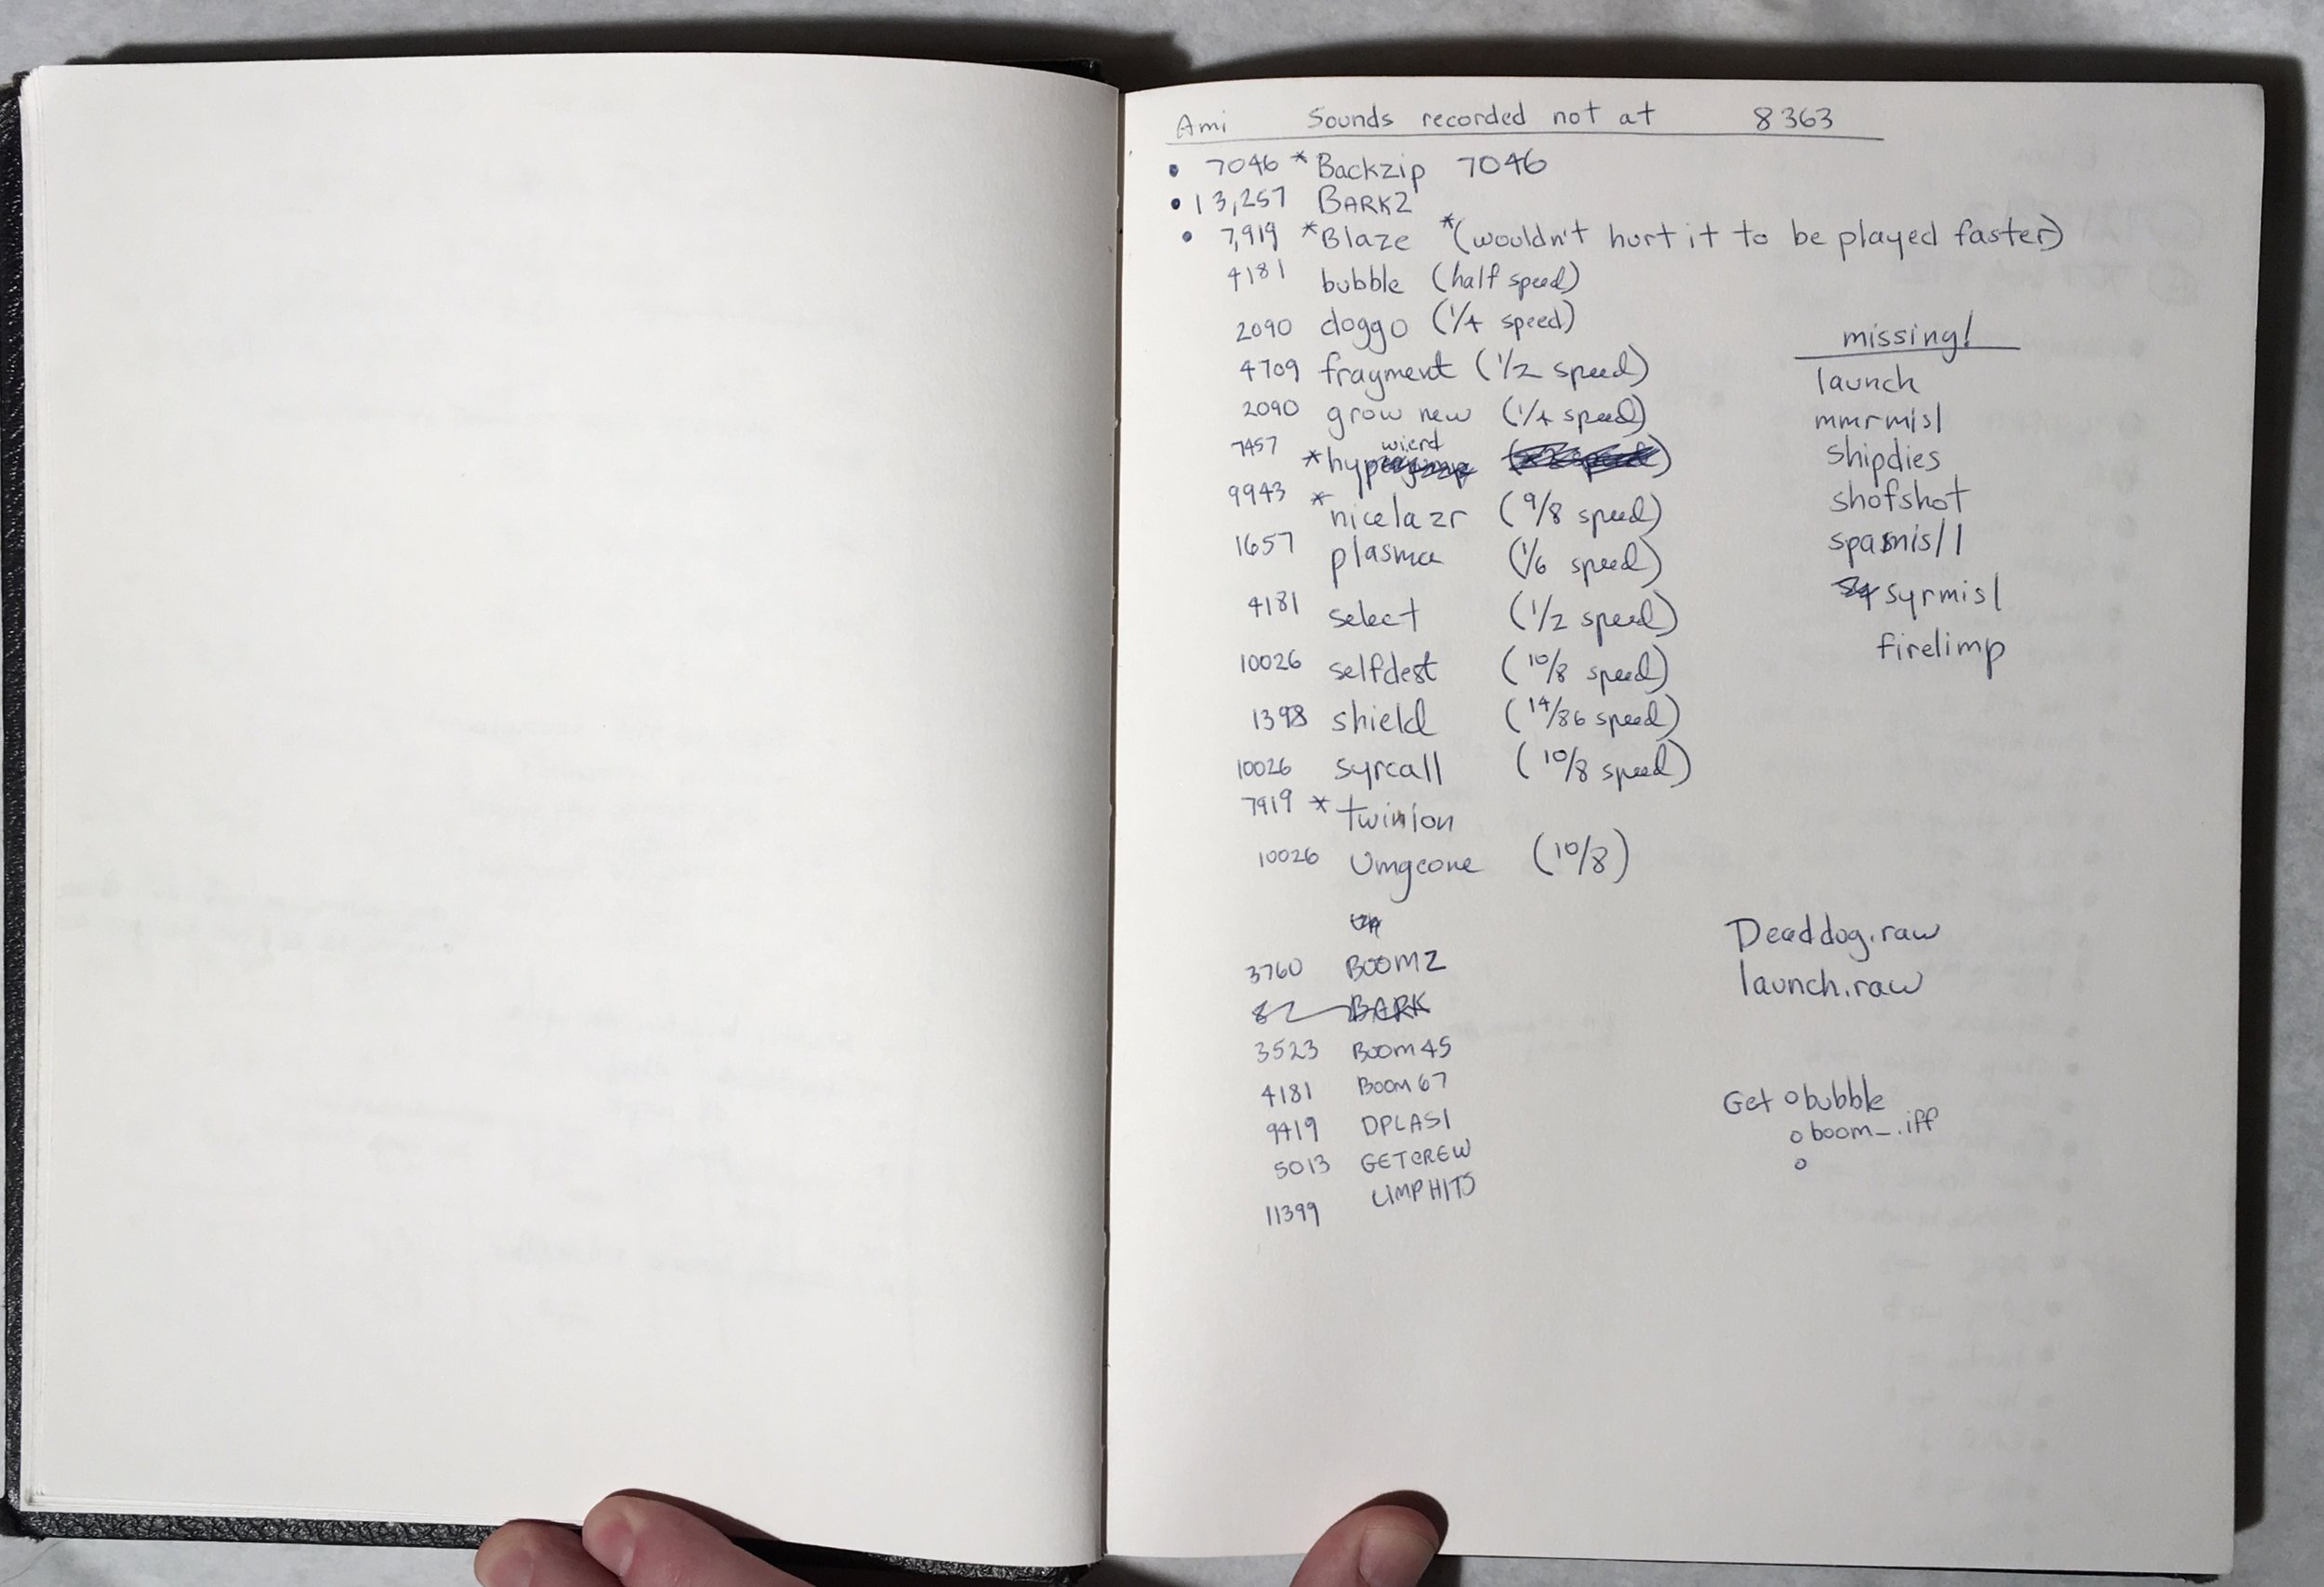 Ami Sounds recorded not at 8363
• 7046 * Backzip 7046
• 13,257 BARK2
• 7,919 * Blaze *(wouldn't hurt it to be played faster)
4181 bubble (half speed)
2090 doggo (1/4 speed)
4709 fragment (1/2 speed)
2090 grow new (1/4 speed)
wierd
7457 *
9943 * nicelazr (9/8 speed)
1657 plasma (1/6 speed)
4181 select (1/2 speed)
10026 selfdest (10/8 speed)
1398 shield (14/86 speed)
10026 syrcall (10/8 speed)
7919 * twinion
10026 Umgcone (10/8)
3760 BOOM2
82 BARK
3523 BOOM45
4181 BOOM67
9419 DPLAS1
5013 GETCREW
11399 LIMPHITS
missing!
launch
mmrmisl
shipdies
shofshot
syrmisl
firelimp
Deaddog.raw
launch.raw
Get o bubble
o boom_.iff
o